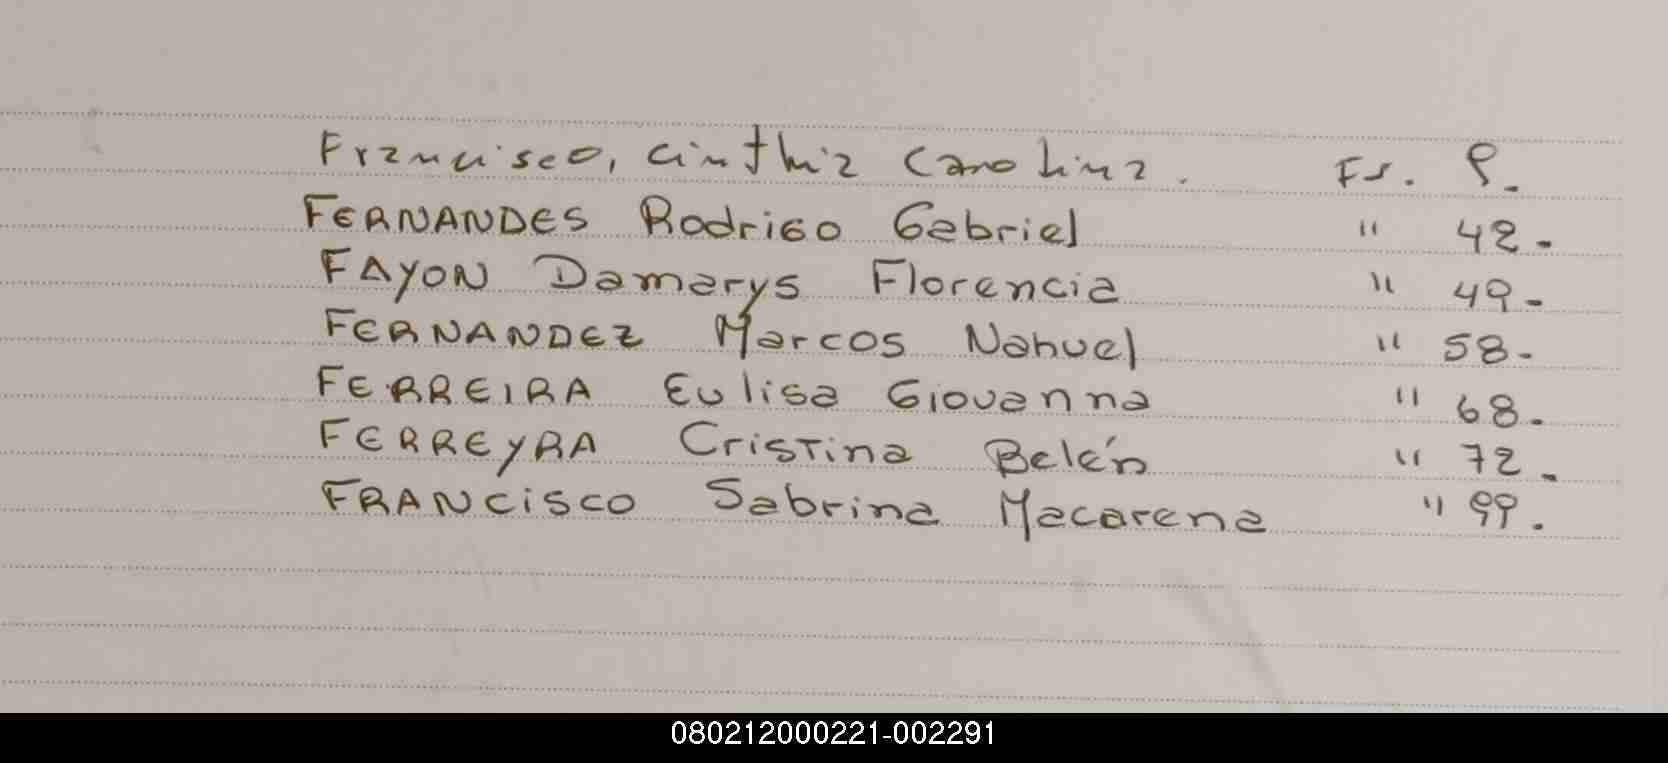 Francisco, Cinthia Carolina. Fs. 9.
FERNANDES Rodrigo Gabriel " 42.
FAYON Damarys Florencia " 49.
FERNANDEZ Marcos Nahuel " 58.
FERREIRA Eulisa Giovanna " 68.
FERREYRA Cristina Belén " 72.
FRANCISCO Sabrina Macarena " 99.
080212000221-002291